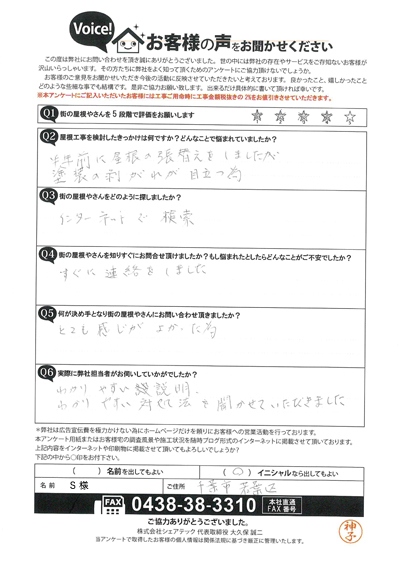 Voice!
お客様の声をお聞かせください
この度は弊社にお問い合わせを頂き誠にありがとうございます。世の中には弊社の存在やサービスをご存知ないお客様が
沢山いらっしゃいます。その方たちに弊社をよく知って頂くためのアンケートにご協力頂けないでしょうか。
お客様のご意見をお聞かせいただき今後の活動に反映させていただきたいと考えております。良かったこと、嬉しかったこと
どのような些細な事でも結構です。是非ご協力お願い致します。出来るだけ具体的に書いて頂ければ幸いです。
※本アンケートにご記入いただいたお客様には工事ご用命時に工事金額税抜きの 2%をお値引きさせていただきます。
Q1 街の屋根やさんを5段階で評価をお願いします
Q2 屋根工事を検討したきっかけは何ですか?どんなことで悩まれていましたか?
年前に屋根の張替えをしましたが
塗装の剥がれが目立つ為
Q3 街の屋根やさんをどのように探しましたか?
インターネットで検索
Q4 街の屋根やさんを知りすぐにお問合せ頂けましたか?もし悩まれたとしたらどんなことがご不安でしたか?
すぐに連絡をしました
Q5 何が決め手となり街の屋根やさんにお問い合わせ頂きましたか?
とても感じがよかった為
Q6 実際に弊社担当者がお伺いしていかがでしたか?
わかりやすい説明、
わかりやすい対処法を聞かせていただきました
※弊社は広告宣伝費を極力かけない為にホームページだけを頼りにお客様への営業活動を行っております。
本アンケート用紙またはお客様宅の調査風景や施工状況を随時ブログ形式のインターネットに掲載させて頂いております。
上記内容をインターネットや印刷物に掲載させて頂いてもよろしいでしょうか?
下記の中から○印をお付け下さい。
( )名前を出してもよい (○)イニシャルなら出してもよい
名前 S様 ご住所 千葉市若葉区
FAX 0438-38-3310 本社直通 FAX番号
ご協力ありがとうございました。
株式会社シェアテック 代表取締役 大久保誠二
当アンケートで取得したお客様の個人情報は関係法規に基づき厳正に管理いたします。
神子